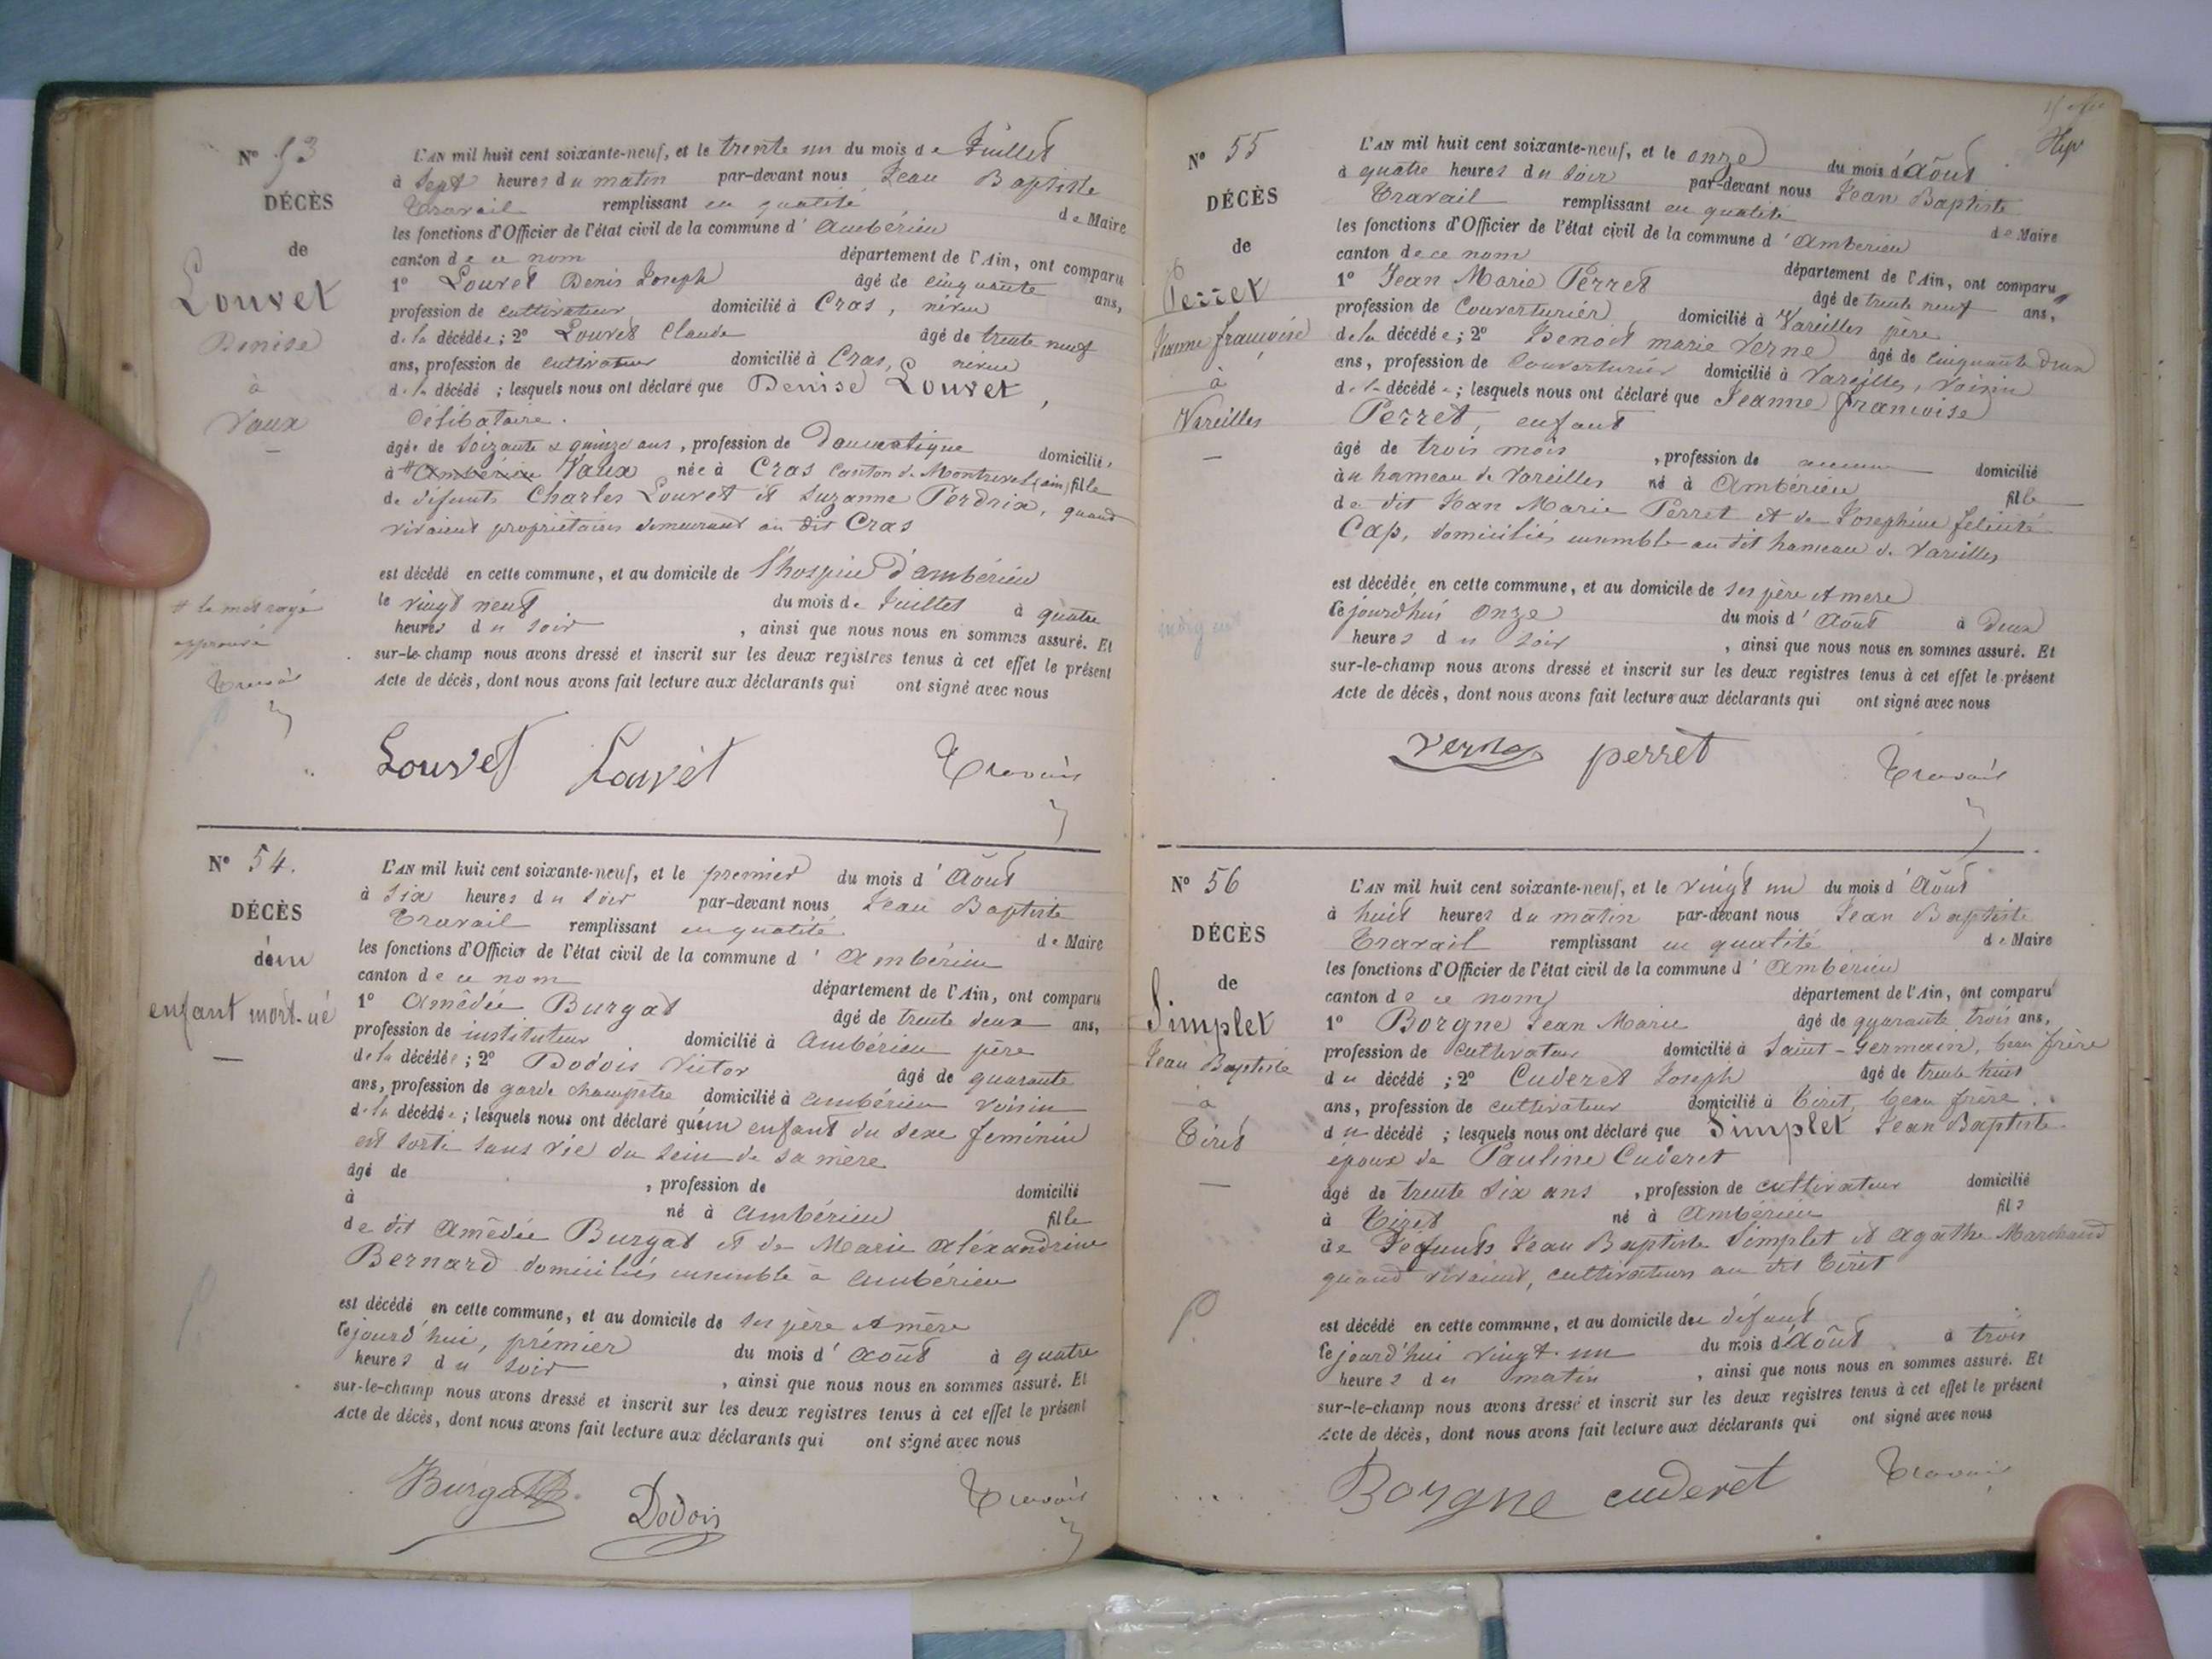 N° 53
DÉCÈS
de
Louvet
Denise
à
Vaux
L'AN mil huit cent soixante-neuf, et le trente un du mois de Juillet
à sept heures du matin par-devant nous Jean Baptiste
Travail remplissant en qualité de Maire
les fonctions d'Officier de l'état civil de la commune d'Ambérieu
canton de ce nom département de l'Ain, ont comparu
1° Louvet Denis Joseph âgé de cinquante ans,
profession de cultivateur domicilié à Cras, neveu
de la décédée; 2° Louvet Claude âgé de trente neuf
ans, profession de cultivateur domicilié à Cras, neveu
de la décédé ; lesquels nous ont déclaré que Denise Louvet,
Célibataire.
âgée de soixante & quinze ans, profession de Domestique domiciliée
à # Ambérieu Vaux née à Cras Canton de Montrevel (ain) fille
de défunts Charles Louvet et Suzanne Perdrix, quand
vivaient propriétaires demeurant au dit Cras
est décédé en cette commune, et au domicile de l'hospice d'ambérieu
le vingt neuf du mois de Juillet à quatre
heures du soir , ainsi que nous nous en sommes assuré. Et
sur-le-champ nous avons dressé et inscrit sur les deux registres tenus à cet effet le présent
Acte de décès, dont nous avons fait lecture aux déclarants qui ont signé avec nous
# le mot rayé
approuvé
Travail
Louvet Louvet Travail
N° 54.
DÉCÈS
d'un
enfant mort-né
L'AN mil huit cent soixante-neuf, et le premier du mois d'Août
à six heures du soir par-devant nous Jean Baptiste
Travail remplissant en qualité de Maire
les fonctions d'Officier de l'état civil de la commune d'Ambérieu
canton de ce nom département de l'Ain, ont comparu
1° Amédée Burgat âgé de trente deux ans,
profession de instituteur domicilié à Ambérieu père
de la décédée; 2° Dodois Victor âgé de quarante
ans, profession de garde champêtre domicilié à ambérieu voisin
de la décédée; lesquels nous ont déclaré qu'un enfant du sexe feminin
est sorti sans vie du sein de sa mère
âgé de , profession de domicilié
à né à Ambérieu fille
de dit Amédée Burgat et de Marie Aléxandrine
Bernard domiciliés ensemble à Ambérieu
est décédé en cette commune, et au domicile de ses père & mère
cejourd'hui, prémier du mois d'août à quatre
heures du soir , ainsi que nous nous en sommes assuré. Et
sur-le-champ nous avons dressé et inscrit sur les deux registres tenus à cet effet le présent
Acte de décès, dont nous avons fait lecture aux déclarants qui ont signé avec nous
Burgat Dodois Travail
N° 55
DÉCÈS
de
Perret
Jeanne françoise
à
Vareilles
indigent
L'AN mil huit cent soixante-neuf, et le onze du mois d'Août
à quatre heures du soir par-devant nous Jean Baptiste
Travail remplissant en qualité de Maire
les fonctions d'Officier de l'état civil de la commune d'Ambérieu
canton de ce nom département de l'Ain, ont comparu
1° Jean Marie Perret âgé de trente neuf ans,
profession de Couverturier, domicilié à Vareilles père
de la décédée; 2° Benoit marie Verne âgé de cinquante deux
ans, profession de Couverturier domicilié à Vareilles, voisin
de la décédée; lesquels nous ont déclaré que Jeanne françoise
Perret, enfant
âgé de trois mois , profession de aucune domicilié
à au hameau de Vareilles né à Ambérieu fille
de dit Jean Marie Perret et de Josephine félicité
Cap, domiciliés ensemble au dit hameau de Vareilles
est décédée en cette commune, et au domicile de ses père & mere
cejourd'hui onze du mois d'Août à deux
heures du soir , ainsi que nous nous en sommes assuré. Et
sur-le-champ nous avons dressé et inscrit sur les deux registres tenus à cet effet le présent
Acte de décès, dont nous avons fait lecture aux déclarants qui ont signé avec nous
Verne perret Travail
N° 56
DÉCÈS
de
Simplet
Jean Baptiste
à
Tiret
L'AN mil huit cent soixante-neuf, et le vingt un du mois d'Août
à huit heures du matin par-devant nous Jean Baptiste
Travail remplissant en qualité de Maire
les fonctions d'Officier de l'état civil de la commune d'Ambérieu
canton de ce nom département de l'Ain, ont comparu
1° Borgne Jean Marie âgé de quarante trois ans,
profession de Cultivateur domicilié à Saint-Germain, beau frère
du décédé ; 2° Cuderet Joseph âgé de trente huit
ans, profession de cultivateur domicilié à Tiret, beau frère
du décédé ; lesquels nous ont déclaré que Simplet Jean Baptiste
époux de Pauline Cuderet
âgé de trente six ans , profession de cultivateur domicilié
à Tiret né à Ambérieu fils
de Défunts Jean Baptiste Simplet et Agathe Marchand
quand vivaient, cultivateurs au dit Tiret
est décédé en cette commune, et au domicile du défunt
cejourd'hui vingt-un du mois d'Août à trois
heures du matin , ainsi que nous nous en sommes assuré. Et
sur-le-champ nous avons dressé et inscrit sur les deux registres tenus à cet effet le présent
Acte de décès, dont nous avons fait lecture aux déclarants qui ont signé avec nous
Borgne cuderet Travail